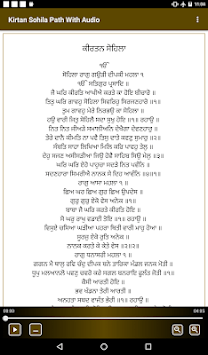 11:04
Kirtan Sohila Path With Audio
ਕੀਰਤਨ ਸੋਹਿਲਾ
ਸੋਹਿਲਾ ਰਾਗੁ ਗਉੜੀ ਦੀਪਕੀ ਮਹਲਾ ੧
ੴ ਸਤਿਗੁਰ ਪ੍ਰਸਾਦਿ ॥
ਜੈ ਘਰਿ ਕੀਰਤਿ ਆਖੀਐ ਕਰਤੇ ਕਾ ਹੋਇ ਬੀਚਾਰੋ ॥
ਤਿਤੁ ਘਰਿ ਗਾਵਹੁ ਸੋਹਿਲਾ ਸਿਵਰਿਹੁ ਸਿਰਜਣਹਾਰੋ ॥੧॥
ਤੁਮ ਗਾਵਹੁ ਮੇਰੇ ਨਿਰਭਉ ਕਾ ਸੋਹਿਲਾ ॥
ਹਉ ਵਾਰੀ ਜਿਤੁ ਸੋਹਿਲੈ ਸਦਾ ਸੁਖੁ ਹੋਇ ॥੧॥ ਰਹਾਉ ॥
ਨਿਤ ਨਿਤ ਜੀਅੜੇ ਸਮਾਲੀਅਨਿ ਦੇਖੈਗਾ ਦੇਵਣਹਾਰੁ ॥
ਤੇਰੇ ਦਾਨੈ ਕੀਮਤਿ ਨਾ ਪਵੈ ਤਿਸੁ ਦਾਤੇ ਕਵਣੁ ਸੁਮਾਰੁ ॥੨॥
ਸੰਬਤਿ ਸਾਹਾ ਲਿਖਿਆ ਮਿਲਿ ਕਰਿ ਪਾਵਹੁ ਤੇਲੁ ॥
ਦੇਹੁ ਸਜਣ ਅਸੀਸੜੀਆ ਜਿਉ ਹੋਵੈ ਸਾਹਿਬ ਸਿਉ ਮੇਲੁ ॥੩॥
ਘਰਿ ਘਰਿ ਏਹੋ ਪਾਹੁਚਾ ਸਦੜੇ ਨਿਤ ਪਵੰਨਿ ॥
ਸਦਣਹਾਰਾ ਸਿਮਰੀਐ ਨਾਨਕ ਸੇ ਦਿਹ ਆਵੰਨਿ ॥੪॥੧॥
ਰਾਗੁ ਆਸਾ ਮਹਲਾ ੧ ॥
ਛਿਅ ਘਰ ਛਿਅ ਗੁਰ ਛਿਅ ਉਪਦੇਸ ॥
ਗੁਰੁ ਗੁਰੁ ਏਕੋ ਵੇਸ ਅਨੇਕ ॥੧॥
ਬਾਬਾ ਜੈ ਘਰਿ ਕਰਤੇ ਕੀਰਤਿ ਹੋਇ ॥
ਸੋ ਘਰੁ ਰਾਖੁ ਵਡਾਈ ਤੋਇ ॥੧॥ ਰਹਾਉ ॥
ਵਿਸੁਏ ਚਸਿਆ ਘੜੀਆ ਪਹਰਾ ਥਿਤੀ ਵਾਰੀ ਮਾਹੁ ਹੋਆ ॥
ਸੂਰਜੁ ਏਕੋ ਰੁਤਿ ਅਨੇਕ ॥
ਨਾਨਕ ਕਰਤੇ ਕੇ ਕੇਤੇ ਵੇਸ ॥੨॥੨॥
ਰਾਗੁ ਧਨਾਸਰੀ ਮਹਲਾ ੧ ॥
ਗਗਨ ਮੈ ਥਾਲੁ ਰਵਿ ਚੰਦੁ ਦੀਪਕ ਬਨੇ ਤਾਰਿਕਾ ਮੰਡਲ ਜਨਕ ਮੋਤੀ ॥
ਧੂਪੁ ਮਲਆਨਲੋ ਪਵਣੁ ਚਵਰੋ ਕਰੇ ਸਗਲ ਬਨਰਾਇ ਫੂਲੰਤ ਜੋਤੀ ॥੧॥
ਕੈਸੀ ਆਰਤੀ ਹੋਇ ॥
ਭਵ ਖੰਡਨਾ ਤੇਰੀ ਆਰਤੀ ॥
ਅਨਹਤਾ ਸਬਦ ਵਾਜੰਤ ਭੇਰੀ ॥੧॥ ਰਹਾਉ ॥